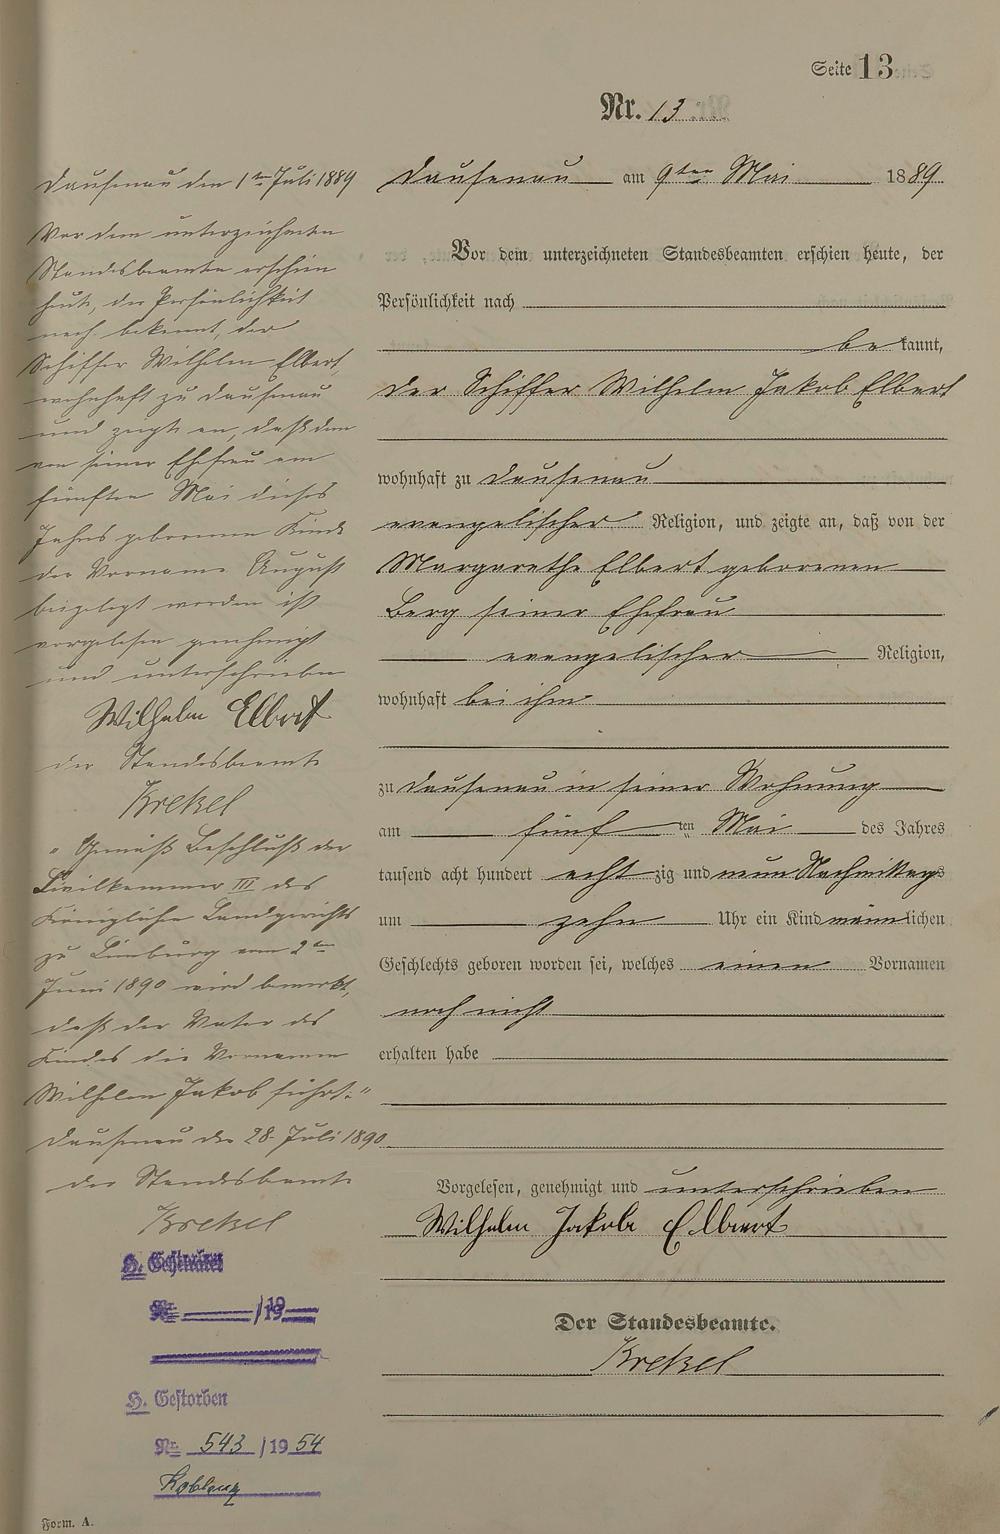 Seite 13
Nr. 13
Dausenau am 9ten Mai 1889
Vor dem unterzeichneten Standesbeamten erschien heute, der
Persönlichkeit nach
be kannt,
der Schiffer Wilhelm Jakob Elbert
wohnhaft zu Dausenau
evangelischer Religion, und zeigte an, daß von der
Margarethe Elbert geborenen
Berg seiner Ehefrau
evangelischer Religion,
wohnhaft bei ihm
zu Dausenau in seiner Wohnung
am fünf ten Mai des Jahres
tausend acht hundert acht zig und neun Nachmittags
um zehn Uhr ein Kind männlichen
Geschlechts geboren worden sei, welches einen Vornamen
noch nicht
erhalten habe
Vorgelesen, genehmigt und unterschrieben
Wilhelm Jakob Elbert
Der Standesbeamte.
Krekel
Dausenau den 1ten Juli 1889
Vor dem unterzeichneten
Standesbeamten erschien
heute, der Persönlichkeit
nach bekannt, der
Schiffer Wilhelm Elbert,
wohnhaft zu Dausenau
und zeigte an, daß dem
von seiner Ehefrau am
fünften Mai dieses
Jahres geborenen Kinde
der Vorname August
beigelegt worden ist
vorgelesen genehmigt
und unterschrieben
Wilhelm Elbert
der Standesbeamte
Krekel
„Gemäß Beschluß der
Civilkammer III des
Königliche Landgerichts
zu Limburg vom 2ten
Juni 1890 wird bemerkt,
daß der Vater des
Kindes die Vornamen
Wilhelm Jakob führt."
Dausenau den 28. Juli 1890
der Standesbeamte
Krekel
Nr. /19
H. Gestorben
Nr. 543 /1954
Koblenz
Form. A.